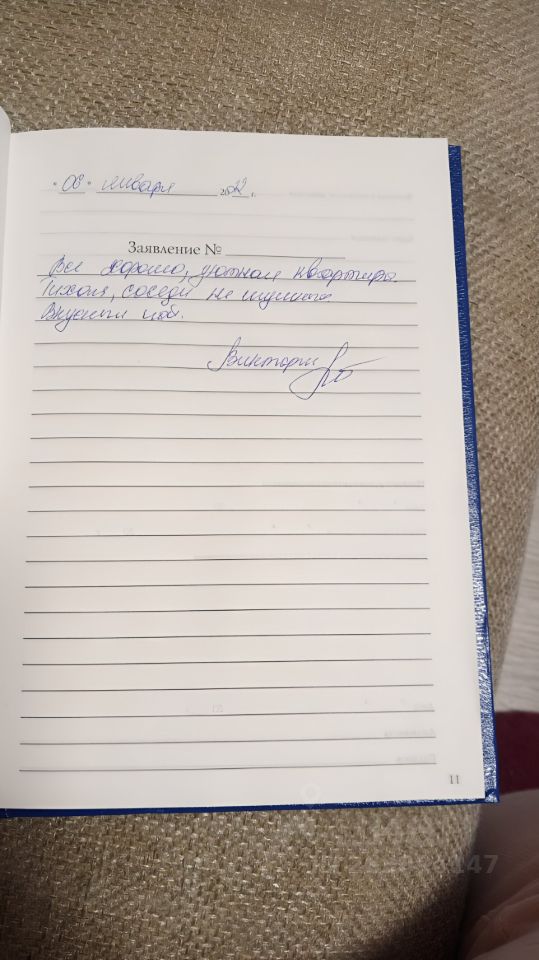 " 08 " января 2022 г.
Заявление №
Все хорошо, уютная квартира.
Тихая, соседи не шумные
Виктория
11